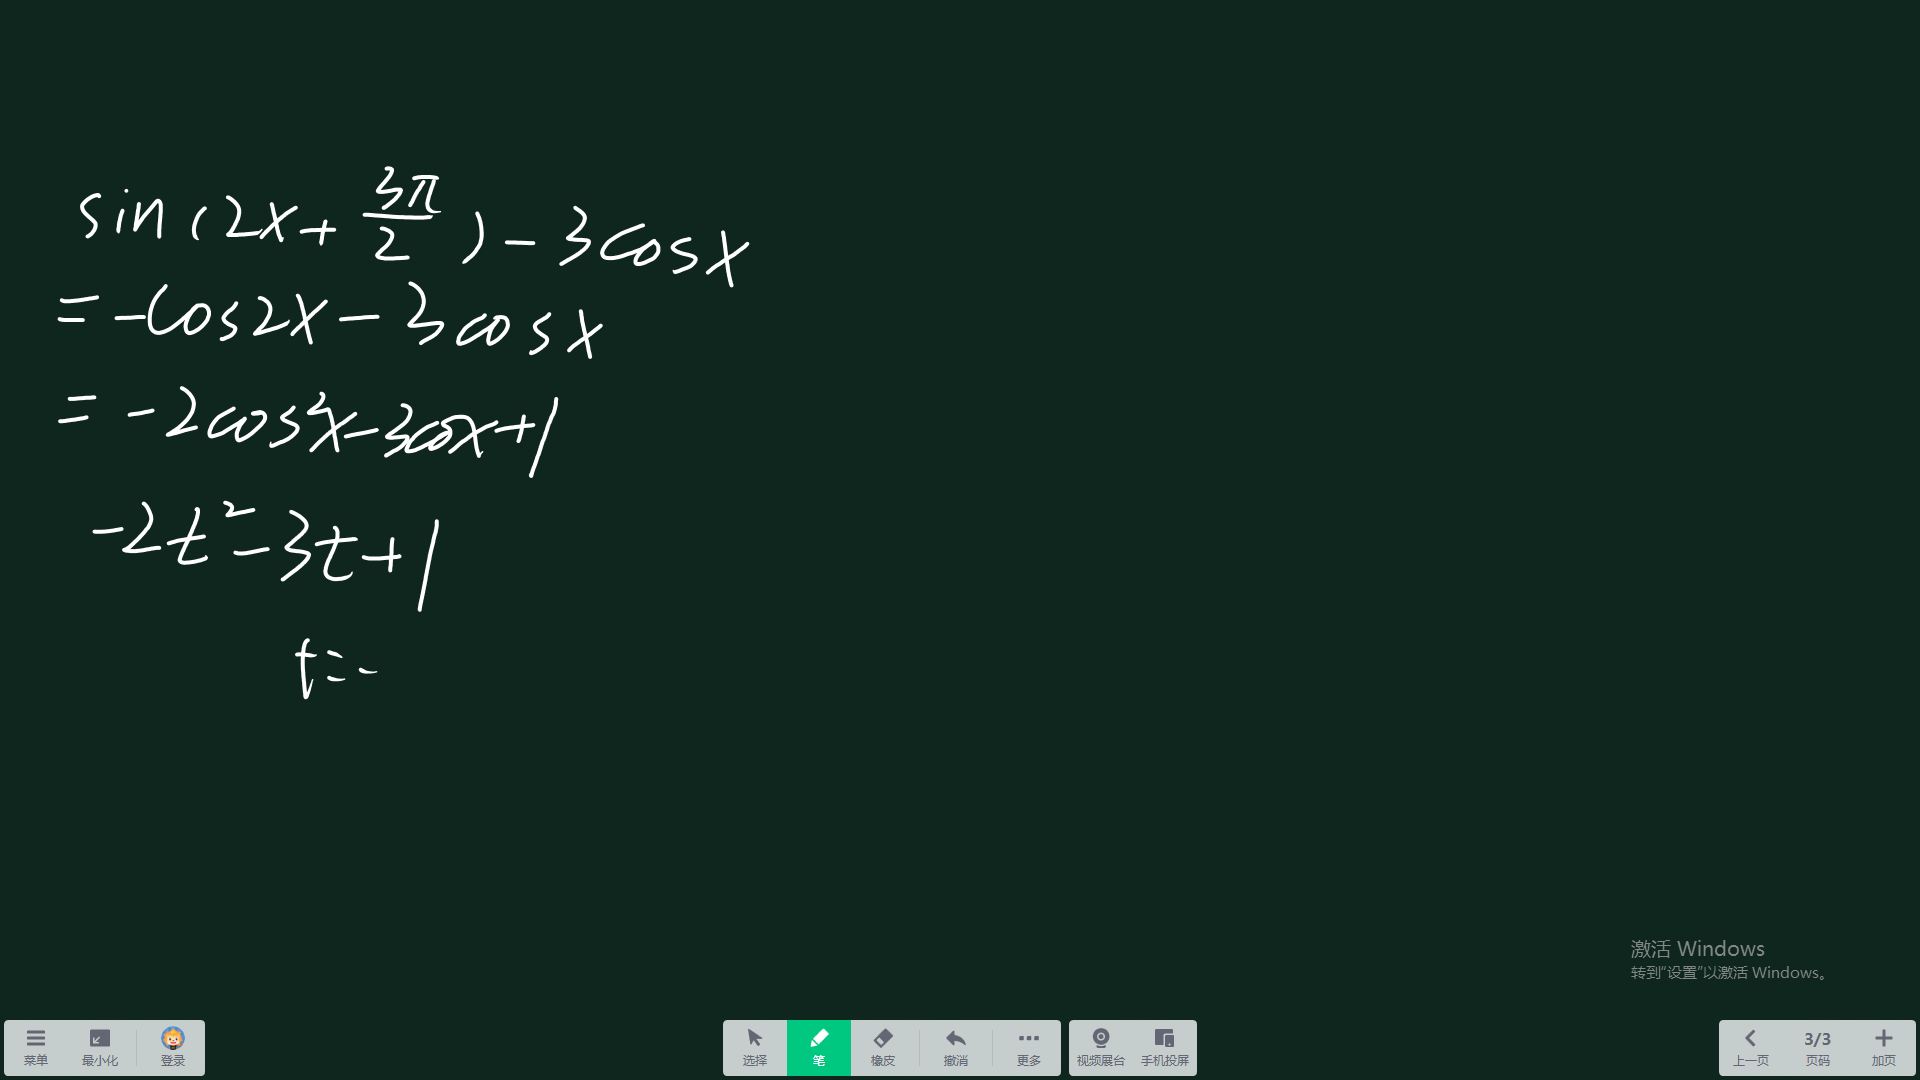 sin(2x+3π/2)-3cosx
=-cos2x-3cosx
=-2cos²x-3cosx+1
-2t²-3t+1
t=-
激活 Windows
转到“设置”以激活 Windows。
菜单 最小化 登录 选择 笔 橡皮 撤消 更多 视频展台 手机投屏 上一页 3/3 页码 加页